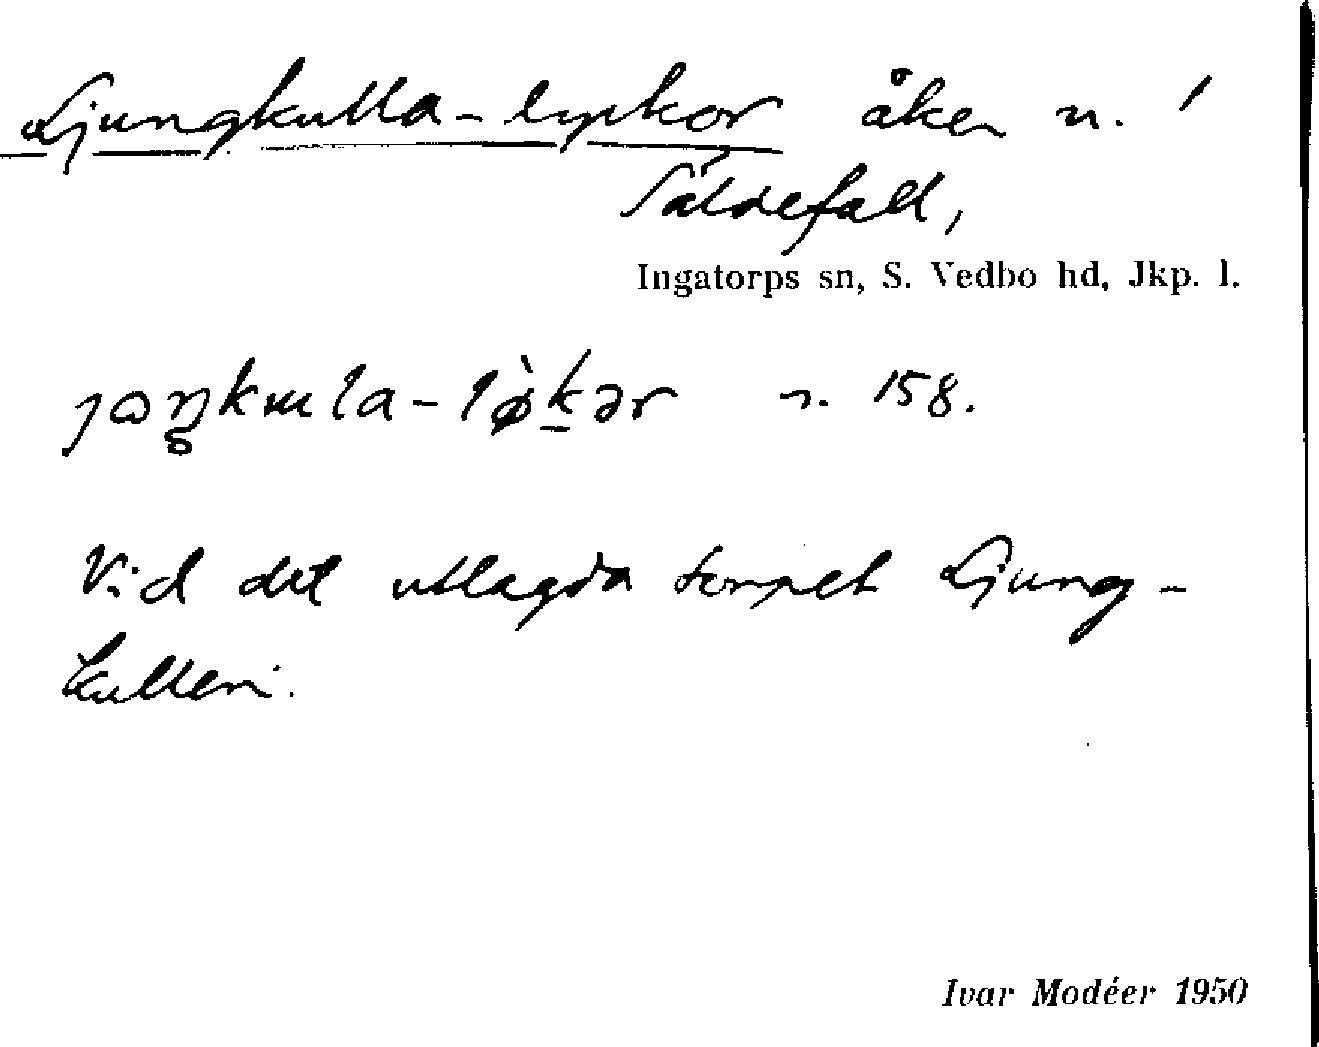 Ljungkulla-lyckor åker n. /
Säldefall,
Ingatorps sn, S. Vedbo hd, Jkp. l.
n. 158.
Vid det utlagda torpet Ljung-
kullen.
Ivar Modéer 1950